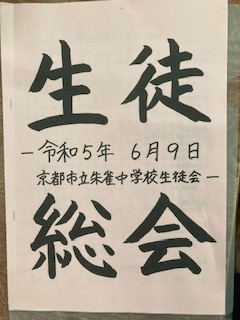 生徒
－令和5年 6月9日
京都市立朱雀中学校生徒会－
総会